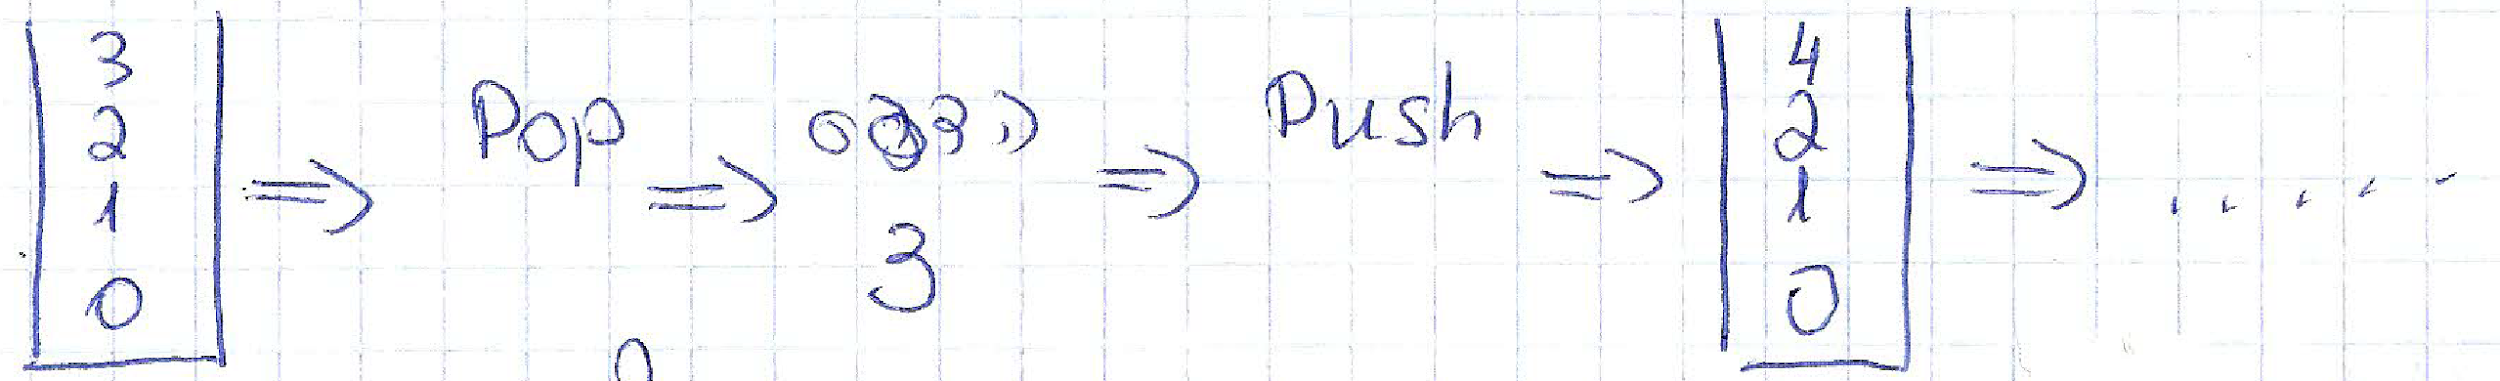 3
2
1
0
⇒ Pop ⇒
3
⇒ Push ⇒
4
2
1
0
⇒ . . . . .